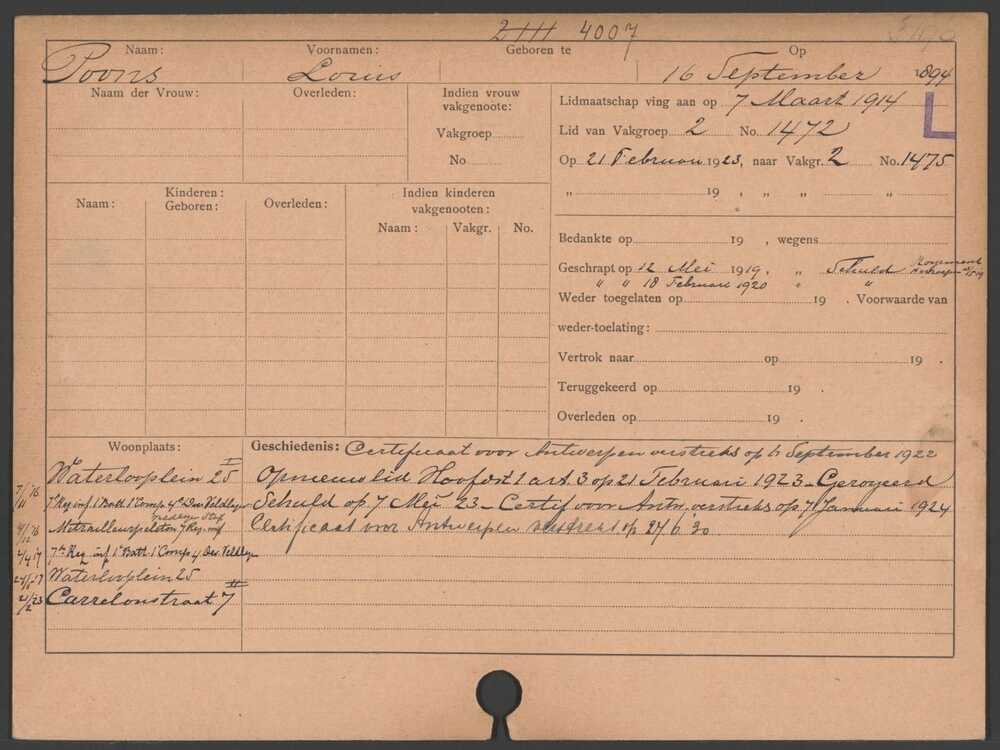 2 III 4007
Naam: Voornamen: Geboren te Op
Poons Louis 16 September 1894
Naam der Vrouw: Overleden: Indien vrouw vakgenoote:
Vakgroep
No
Lidmaatschap ving aan op 7 Maart 1914 L
Lid van Vakgroep 2 No. 1472
Op 21 Februari 1923, naar Vakgr. 2 No. 1475
„ 19 , „ „ „
Kinderen:
Naam: Geboren: Overleden:
Indien kinderen vakgenooten:
Naam: Vakgr. No.
Bedankte op 19 , wegens
Geschrapt op 12 Mei 1919, „ Schuld
„ „ 18 Februari 1920 „ „
Weder toegelaten op 19 . Voorwaarde van
weder-toelating:
Vertrok naar op 19 .
Teruggekeerd op 19 .
Overleden op 19 .
Woonplaats:
Waterlooplein 25 II
7/11 16 7e Reg inf 1e Batt 1e Comp 4e Det Veldleger
4/12 16 Mitrailleurpeloton 7 Reg. inf
2/4 17 7e Reg inf 1e Batt 1e Comp 4 Det. Veldleger
Waterlooplein 25
21/2 23 Carrelonstraat 7 II
Geschiedenis: Certificaat voor Antwerpen verstrekt op 6 September 1922
Opnieuw lid Hoofdst 1 art. 3 op 21 Februari 1923 - Geroyeerd
Schuld op 7 Mei 23 - Certif voor Antw. verstrekt op 7 Januari 1924
Certificaat voor Antwerpen verstrekt op 27/6 30